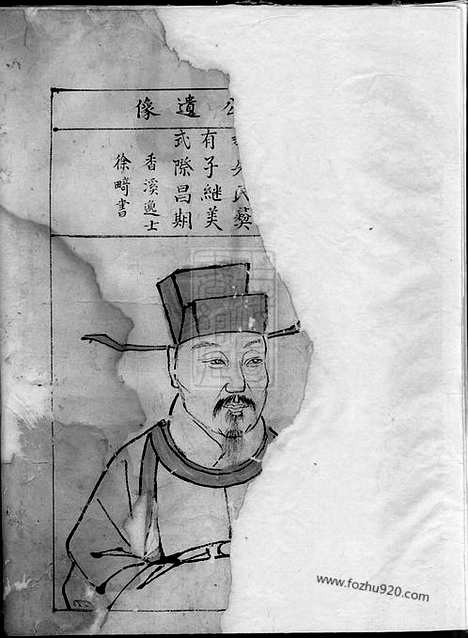 公遺像
民彝
有子継美
式際昌期
香溪逸士
徐畸書
www.fozhu920.com